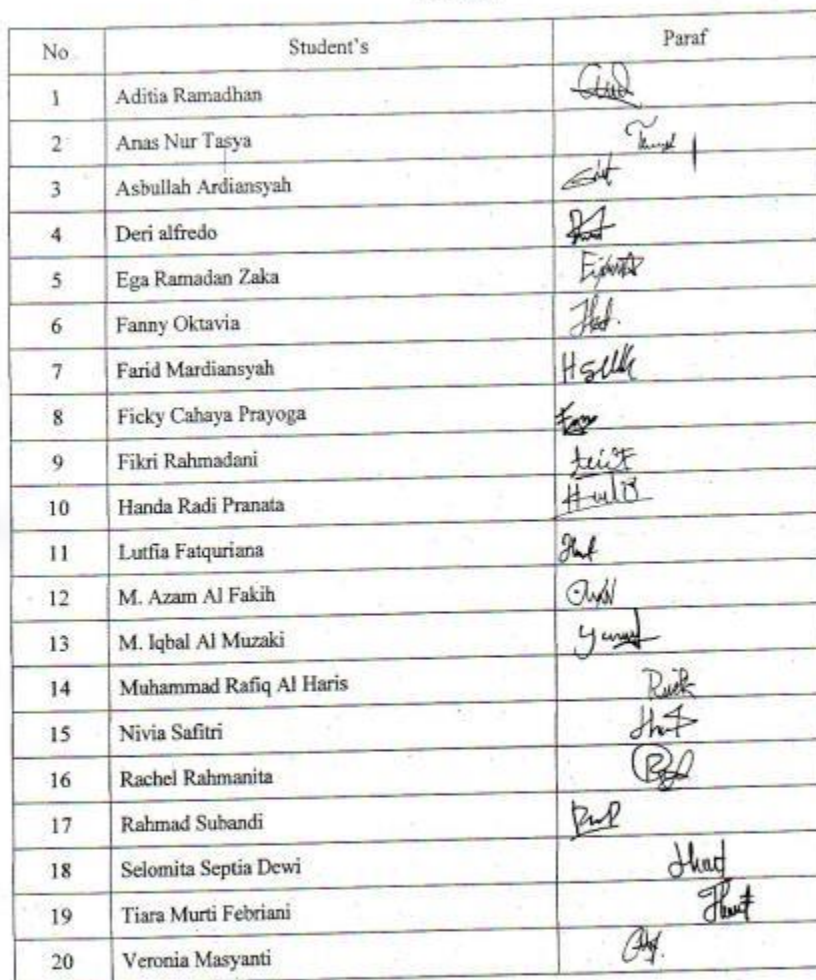 No Student's Paraf
1 Aditia Ramadhan
2 Anas Nur Tasya
3 Asbullah Ardiansyah
4 Deri alfredo
5 Ega Ramadan Zaka
6 Fanny Oktavia
7 Farid Mardiansyah
8 Ficky Cahaya Prayoga
9 Fikri Rahmadani
10 Handa Radi Pranata
11 Lutfia Fatquriana
12 M. Azam Al Fakih
13 M. Iqbal Al Muzaki
14 Muhammad Rafiq Al Haris
15 Nivia Safitri
16 Rachel Rahmanita
17 Rahmad Subandi
18 Selomita Septia Dewi
19 Tiara Murti Febriani
20 Veronia Masyanti